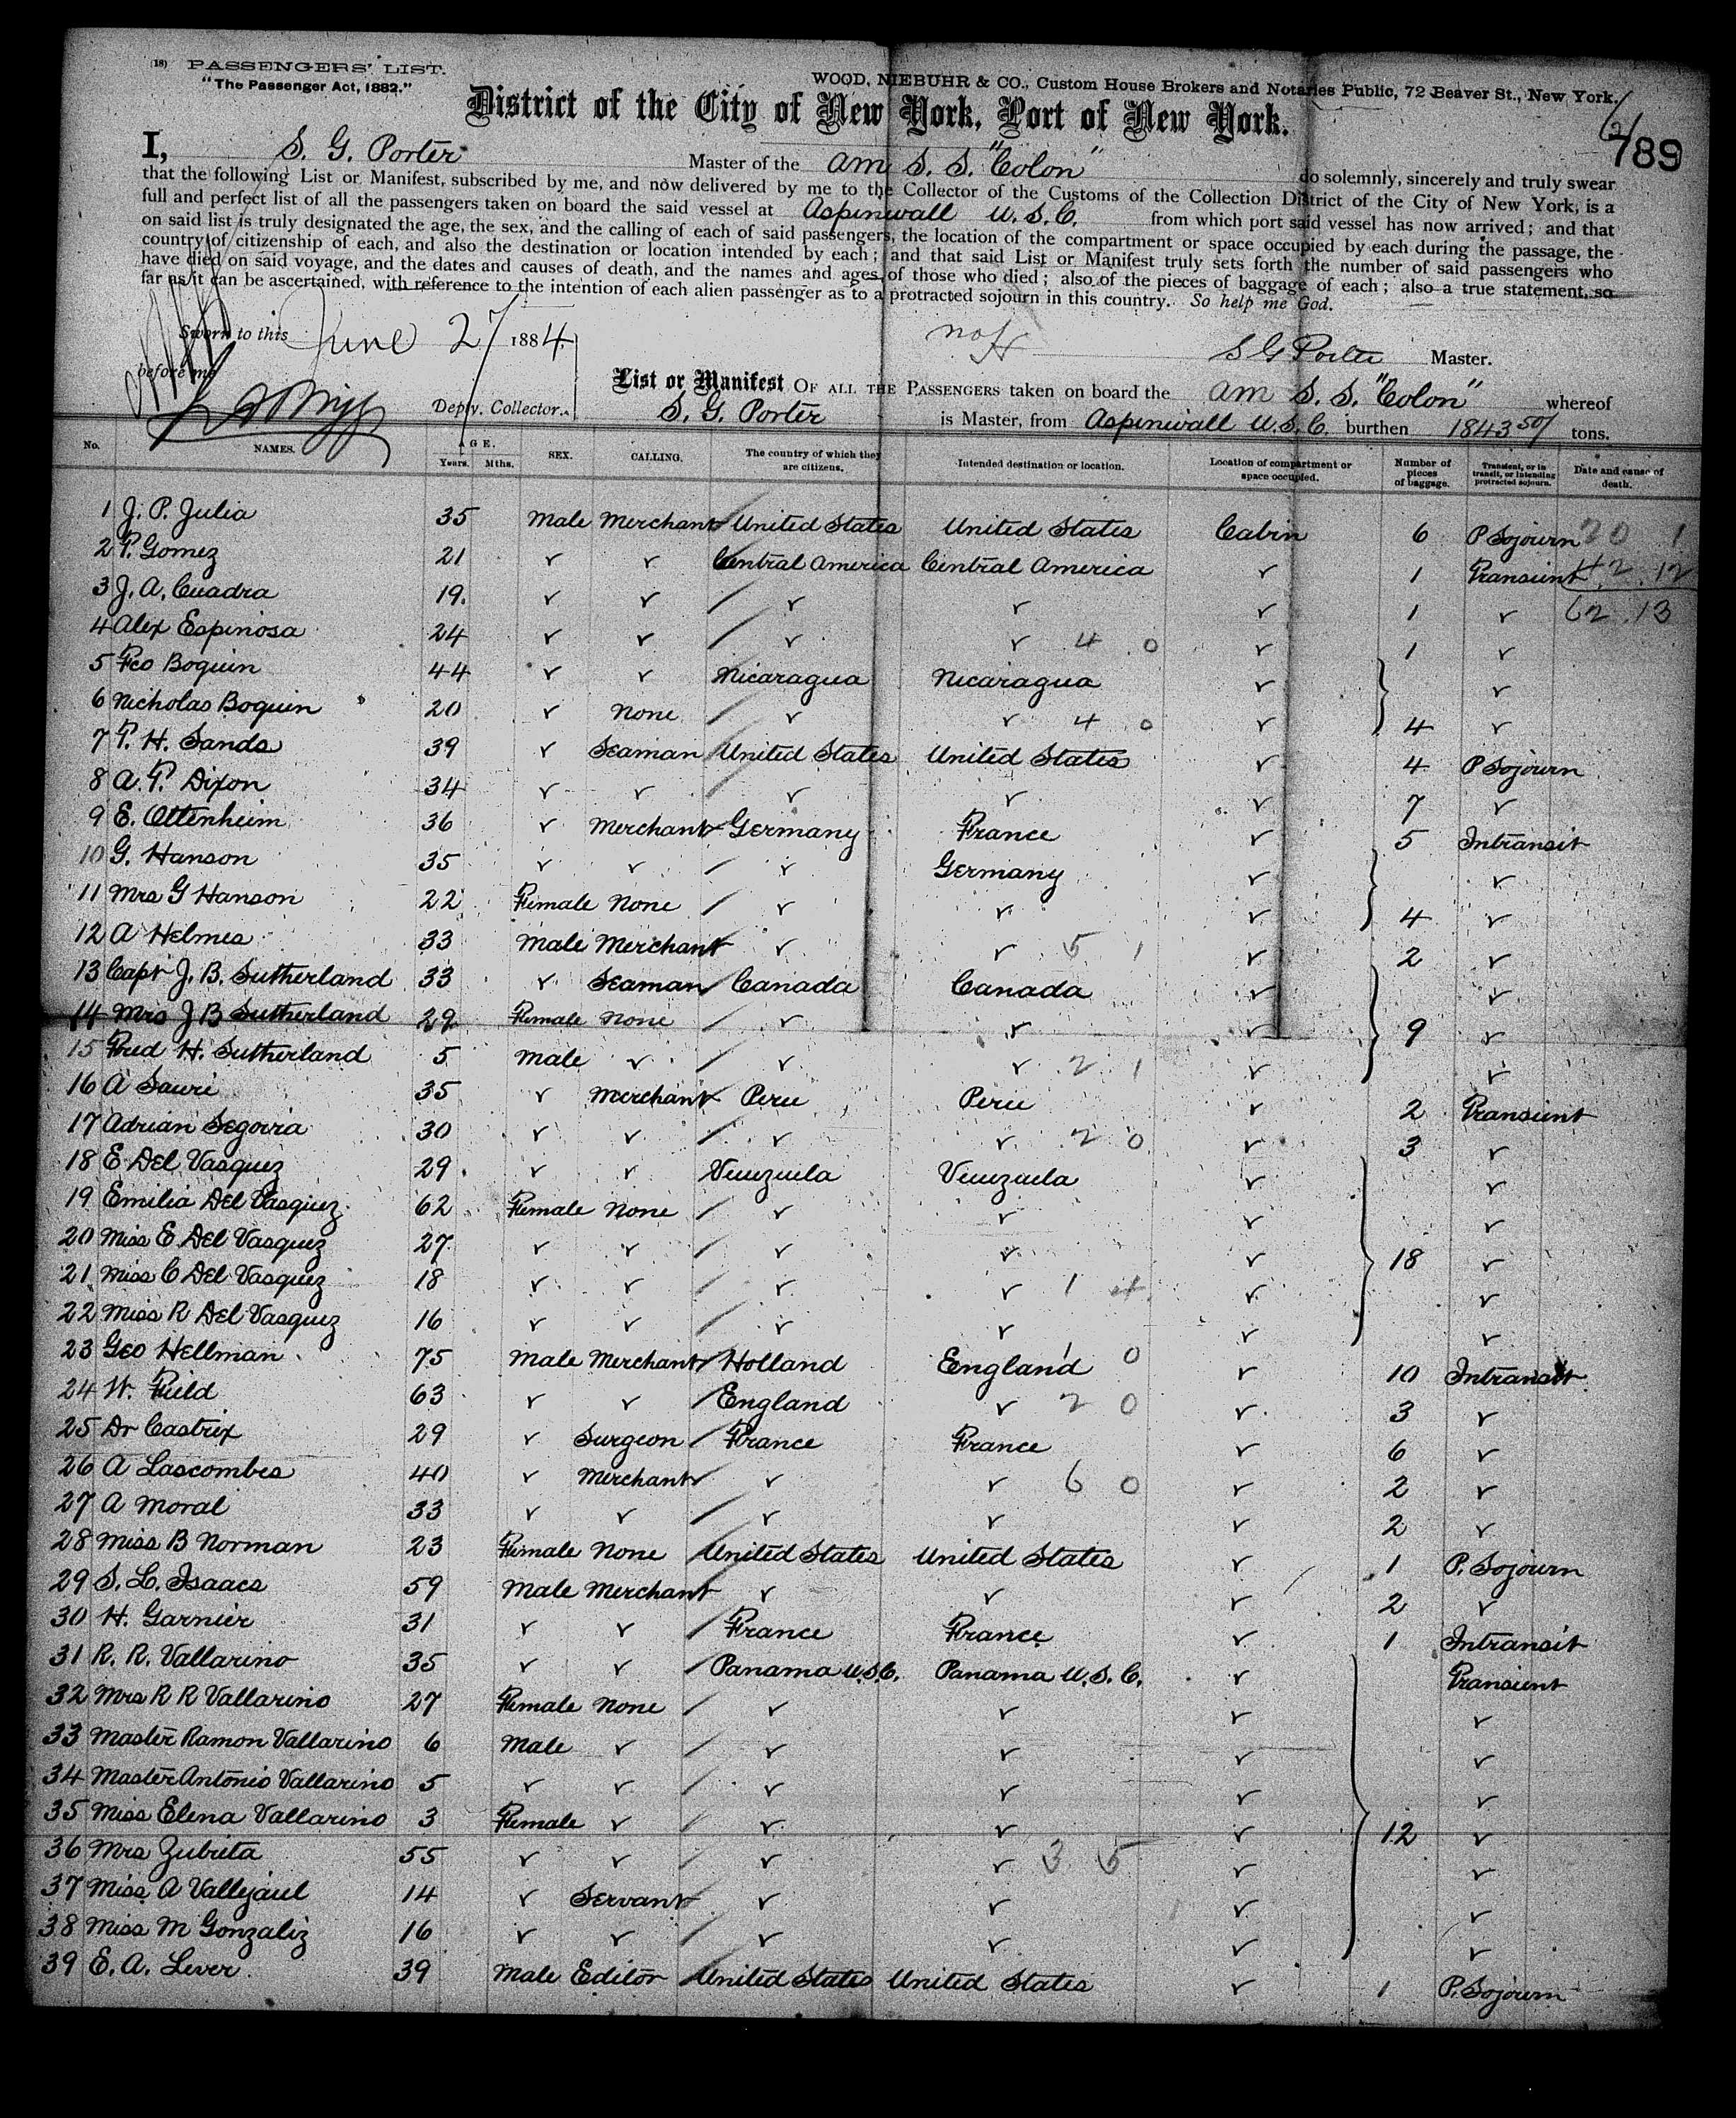 (18) PASSENGERS' LIST.
"The Passenger Act, 1882."
WOOD, NIEBUHR & CO., Custom House Brokers and Notaries Public, 72 Beaver St., New York.
District of the City of New York, Port of New York.
789
I, S. G. Porter Master of the Am S. S. "Colon" do solemnly, sincerely and truly swear
that the following List or Manifest, subscribed by me, and now delivered by me to the Collector of the Customs of the Collection District of the City of New York, is a
full and perfect list of all the passengers taken on board the said vessel at Aspinwall U.S.C. from which port said vessel has now arrived; and that
on said list is truly designated the age, the sex, and the calling of each of said passengers, the location of the compartment or space occupied by each during the passage, the
country of citizenship of each, and also the destination or location intended by each; and that said List or Manifest truly sets forth the number of said passengers who
have died on said voyage, and the dates and causes of death, and the names and ages of those who died; also of the pieces of baggage of each; also a true statement, so
far as it can be ascertained, with reference to the intention of each alien passenger as to a protracted sojourn in this country. So help me God.
Sworn to this June 27 1884,
before me
S G Porter Master.
Depty. Collector.
List or Manifest OF ALL THE PASSENGERS taken on board the Am S. S. "Colon" whereof
S. G. Porter is Master, from Aspinwall U.S.C. burthen 1843 50/ tons.
No. NAMES. AGE. Years. Mths. SEX. CALLING. The country of which they are citizens. Intended destination or location. Location of compartment or space occupied. Number of pieces of baggage. Transient, or in transit, or intending protracted sojourn. Date and cause of death.
1 J. P. Julia 35 Male Merchant United States United States Cabin 6 P Sojourn 20 1
2 P. Gomez 21 ✓ ✓ Central America Central America ✓ 1 Transient 42 12
3 J. A. Cuadra 19. ✓ ✓ ✓ ✓ ✓ 1 ✓ 62 13
4 Alex Espinosa 24 ✓ ✓ ✓ ✓ 4 0 ✓ 1 ✓
5 Fco Boquin 44 ✓ ✓ Nicaragua Nicaragua ✓ ✓
6 Nicholas Boquin 20 ✓ None ✓ ✓ 4 0 ✓ 4 ✓
7 P. H. Sands 39 ✓ Seaman United States United States ✓ 4 P Sojourn
8 A. P. Dixon 34 ✓ ✓ ✓ ✓ ✓ 7 ✓
9 E. Ottenheim 36 ✓ Merchant Germany France ✓ 5 Intransit
10 G. Hanson 35 ✓ ✓ ✓ Germany ✓ ✓
11 Mrs G Hanson 22 Female None ✓ ✓ ✓ 4 ✓
12 A Helmes 33 Male Merchant ✓ ✓ 5 1 ✓ 2 ✓
13 Capt J. B. Sutherland 33 ✓ Seaman Canada Canada ✓ ✓
14 Mrs J B Sutherland 29 Female None ✓ ✓ ✓ 9 ✓
15 Fred H. Sutherland 5 Male ✓ ✓ ✓ 2 1 ✓ ✓
16 A Sauri 35 ✓ Merchant Peru Peru ✓ 2 Transient
17 Adrian Segovia 30 ✓ ✓ ✓ ✓ 2 0 ✓ 3 ✓
18 E Del Vasquez 29. ✓ ✓ Venezuela Venezuela ✓ ✓
19 Emilia Del Vasquez 62 Female None ✓ ✓ ✓ ✓
20 Miss E Del Vasquez 27 ✓ ✓ ✓ ✓ ✓ 18 ✓
21 Miss C Del Vasquez 18 ✓ ✓ ✓ ✓ 1 4 ✓ ✓
22 Miss R Del Vasquez 16 ✓ ✓ ✓ ✓ ✓ ✓
23 Geo Hellman 75 Male Merchant Holland England 1 0 ✓ 10 Intransit
24 W. Field 63 ✓ ✓ England ✓ 2 0 ✓ 3 ✓
25 Dr Castrix 29 ✓ Surgeon France France ✓ 6 ✓
26 A Lascombes 40 ✓ Merchant ✓ ✓ 6 0 ✓ 2 ✓
27 A Moral 33 ✓ ✓ ✓ ✓ ✓ 2 ✓
28 Miss B Norman 23 Female None United States United States ✓ 1 P. Sojourn
29 S. L. Isaacs 59 Male Merchant ✓ ✓ ✓ 2 ✓
30 H. Garnier 31 ✓ ✓ France France ✓ 1 Intransit
31 R. R. Vallarino 35 ✓ ✓ Panama U.S.C. Panama U.S.C. ✓ Transient
32 Mrs R R Vallarino 27 Female None ✓ ✓ ✓ ✓
33 Master Ramon Vallarino 6 Male ✓ ✓ ✓ ✓ ✓
34 Master Antonio Vallarino 5 ✓ ✓ ✓ ✓ ✓ ✓
35 Miss Elena Vallarino 3 Female ✓ ✓ ✓ ✓ 12 ✓
36 Mrs Zubieta 55 ✓ ✓ ✓ ✓ 3 5 ✓ ✓
37 Miss A Vallejaul 14 ✓ Servant ✓ ✓ ✓ ✓
38 Miss M Gonzaliz 16 ✓ ✓ ✓ ✓ ✓ ✓
39 E. A. Lever 39 Male Editor United States United States ✓ 1 P. Sojourn